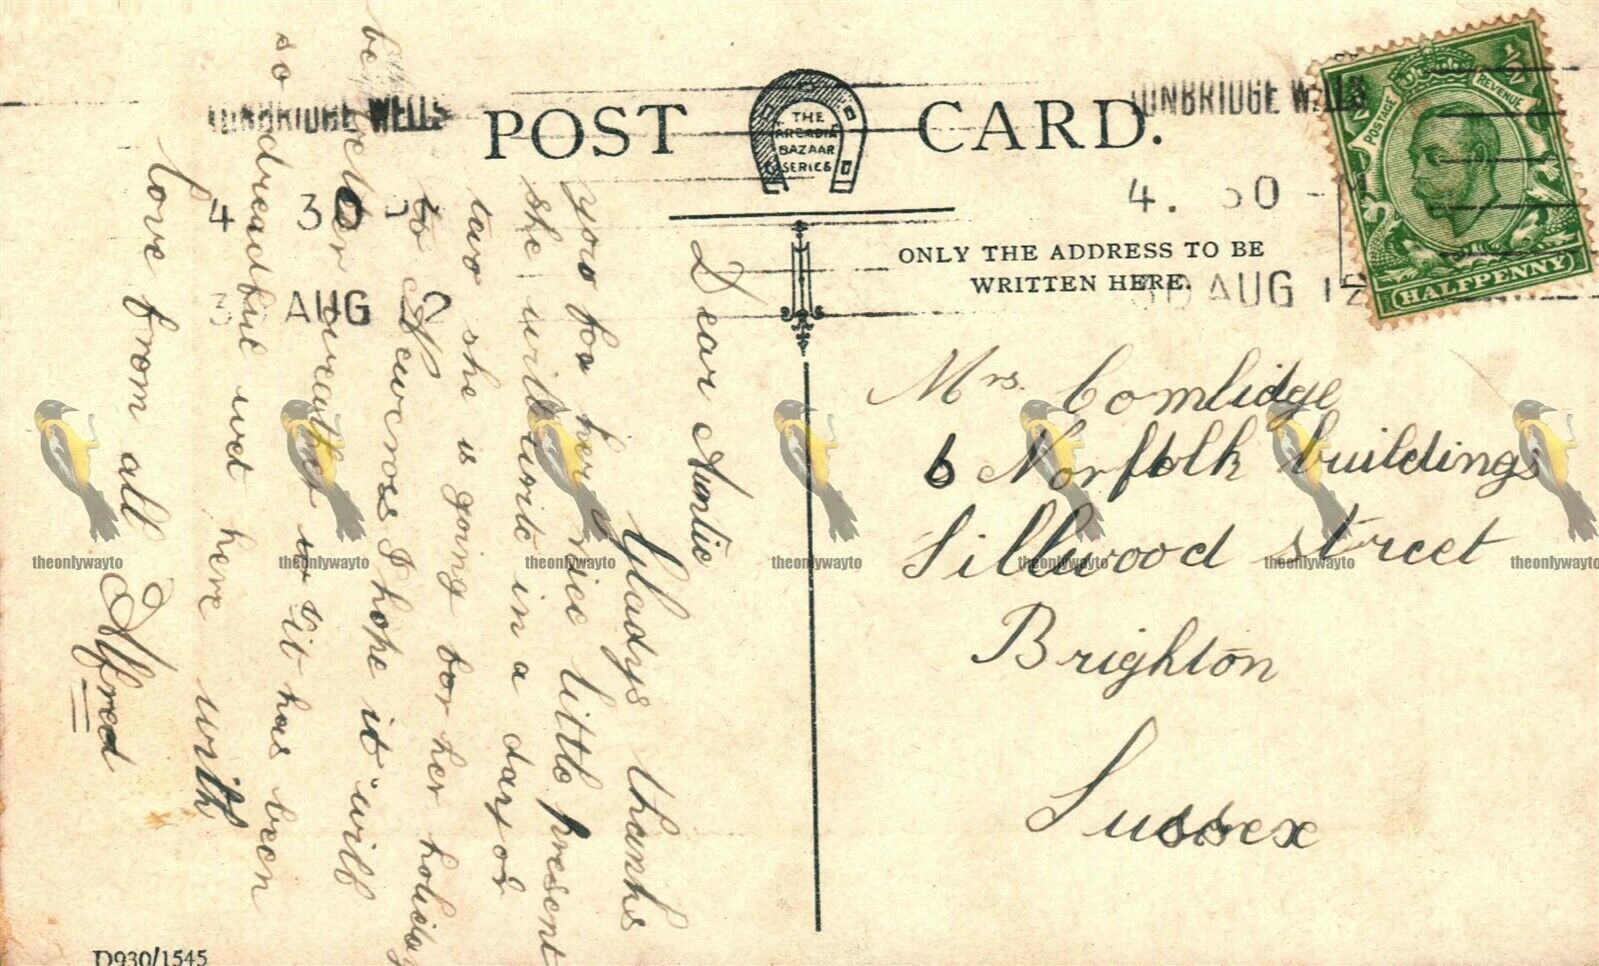 POST CARD.
THE
ARCADIA
BAZAAR
SERIES
TUNBRIDGE WELLS
4 30
30 AUG 12
TUNBRIDGE WELLS
4. 30 - M
30 AUG 12
1/2 1/2
POSTAGE REVENUE
HALFPENNY
ONLY THE ADDRESS TO BE
WRITTEN HERE.
Mrs. Comlidge
6 Norfolk buildings
Sillwood street
Brighton
Sussex
Dear Auntie
Gladys thanks
you for her nice little present
she will write in a day or
two she is going for her holiday
to I hope it will
be better weather for it has been
so dreadful wet here with
love from all
Alfred
D930/1545
theonlywayto theonlywayto theonlywayto theonlywayto theonlywayto theonlywayto theonlywayto